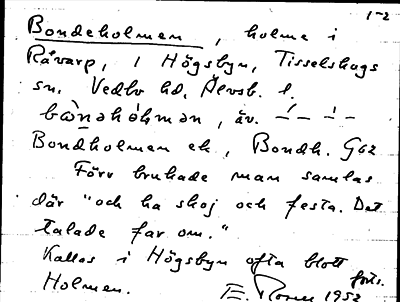 1-2
Bondeholmen, holme i
Råvarp, i Högsbyn, Tisselskogs
sn. Vedbo hd, Älvsb. l.
bònəhólmən, äv.
Bondholmen ek, Bondh. G62
Förr brukade man samlas
där "och ha skoj och festa. Det
talade far om."
Kallas i Högsbyn ofta blott
forts.
Holmen. 1952